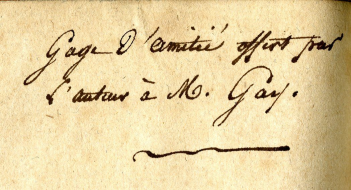 Gage D'amitié offert par
l'auteur à M. Gay.